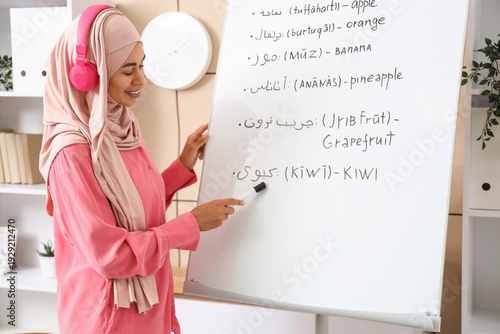 تفاحة (tuffāḥaẗ) - apple
برتقال (burtuqāl) - orange
موز (MŪZ) - BANANA
أناناس: (ANĀNĀS) - pineapple
جريب فروت: (JRIB FRŪT) -
GRAPEFRUIT
كيوي: (KĪWĪ) - KIWI